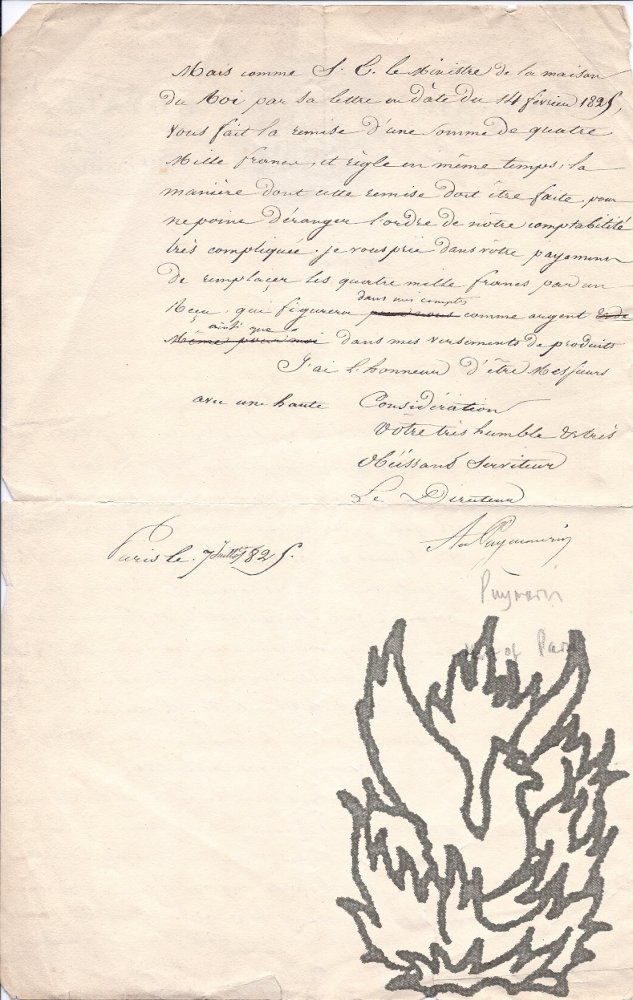 Mais comme S. E. le Ministre de la maison
du Roi par sa lettre en date du 14 février 1825,
vous fait la remise d'une somme de quatre
Mille francs, et règle en même temps, la
manière dont cette remise doit être faite, pour
ne point déranger l'ordre de nôtre comptabilité
très compliquée, je vous prie dans vôtre payement
de remplaçer les quatre mille francs par un
dans mes comptes
Recu, qui figurera comme argent
ainsi que
Mêmes pour moi dans mes versements de produits
J'ai l'honneur d'être Messieurs
avec une haute Considération
Vôtre très humble & très
Obéissant Serviteur
Le Directeur
Paris le 7 Juillet 1825.
Puymaurin
Puymarin
of Paris